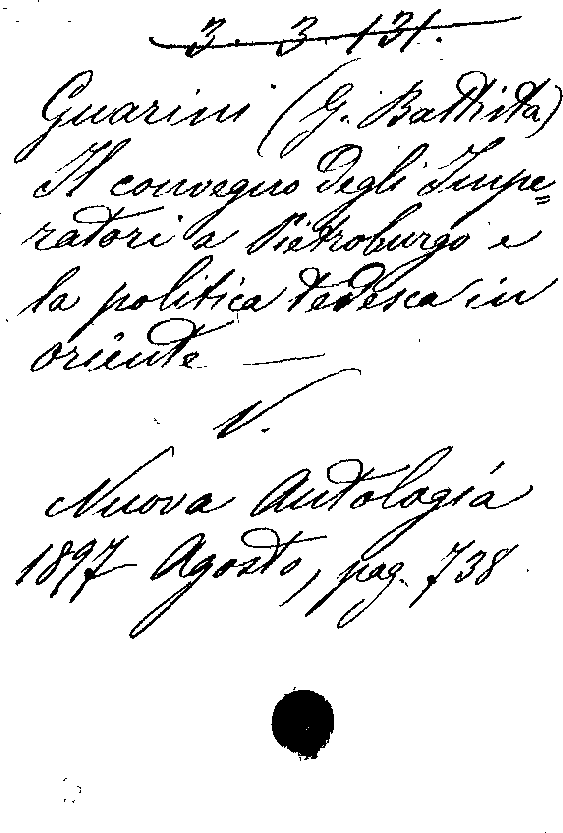 3. 3. 131.
Guarini (G. Battista)
Il convegno degli Impe=
ratori a Pietroburgo e
la politica tedesca in
oriente —
V.
Nuova Antologia
1897 Agosto, pag. 738